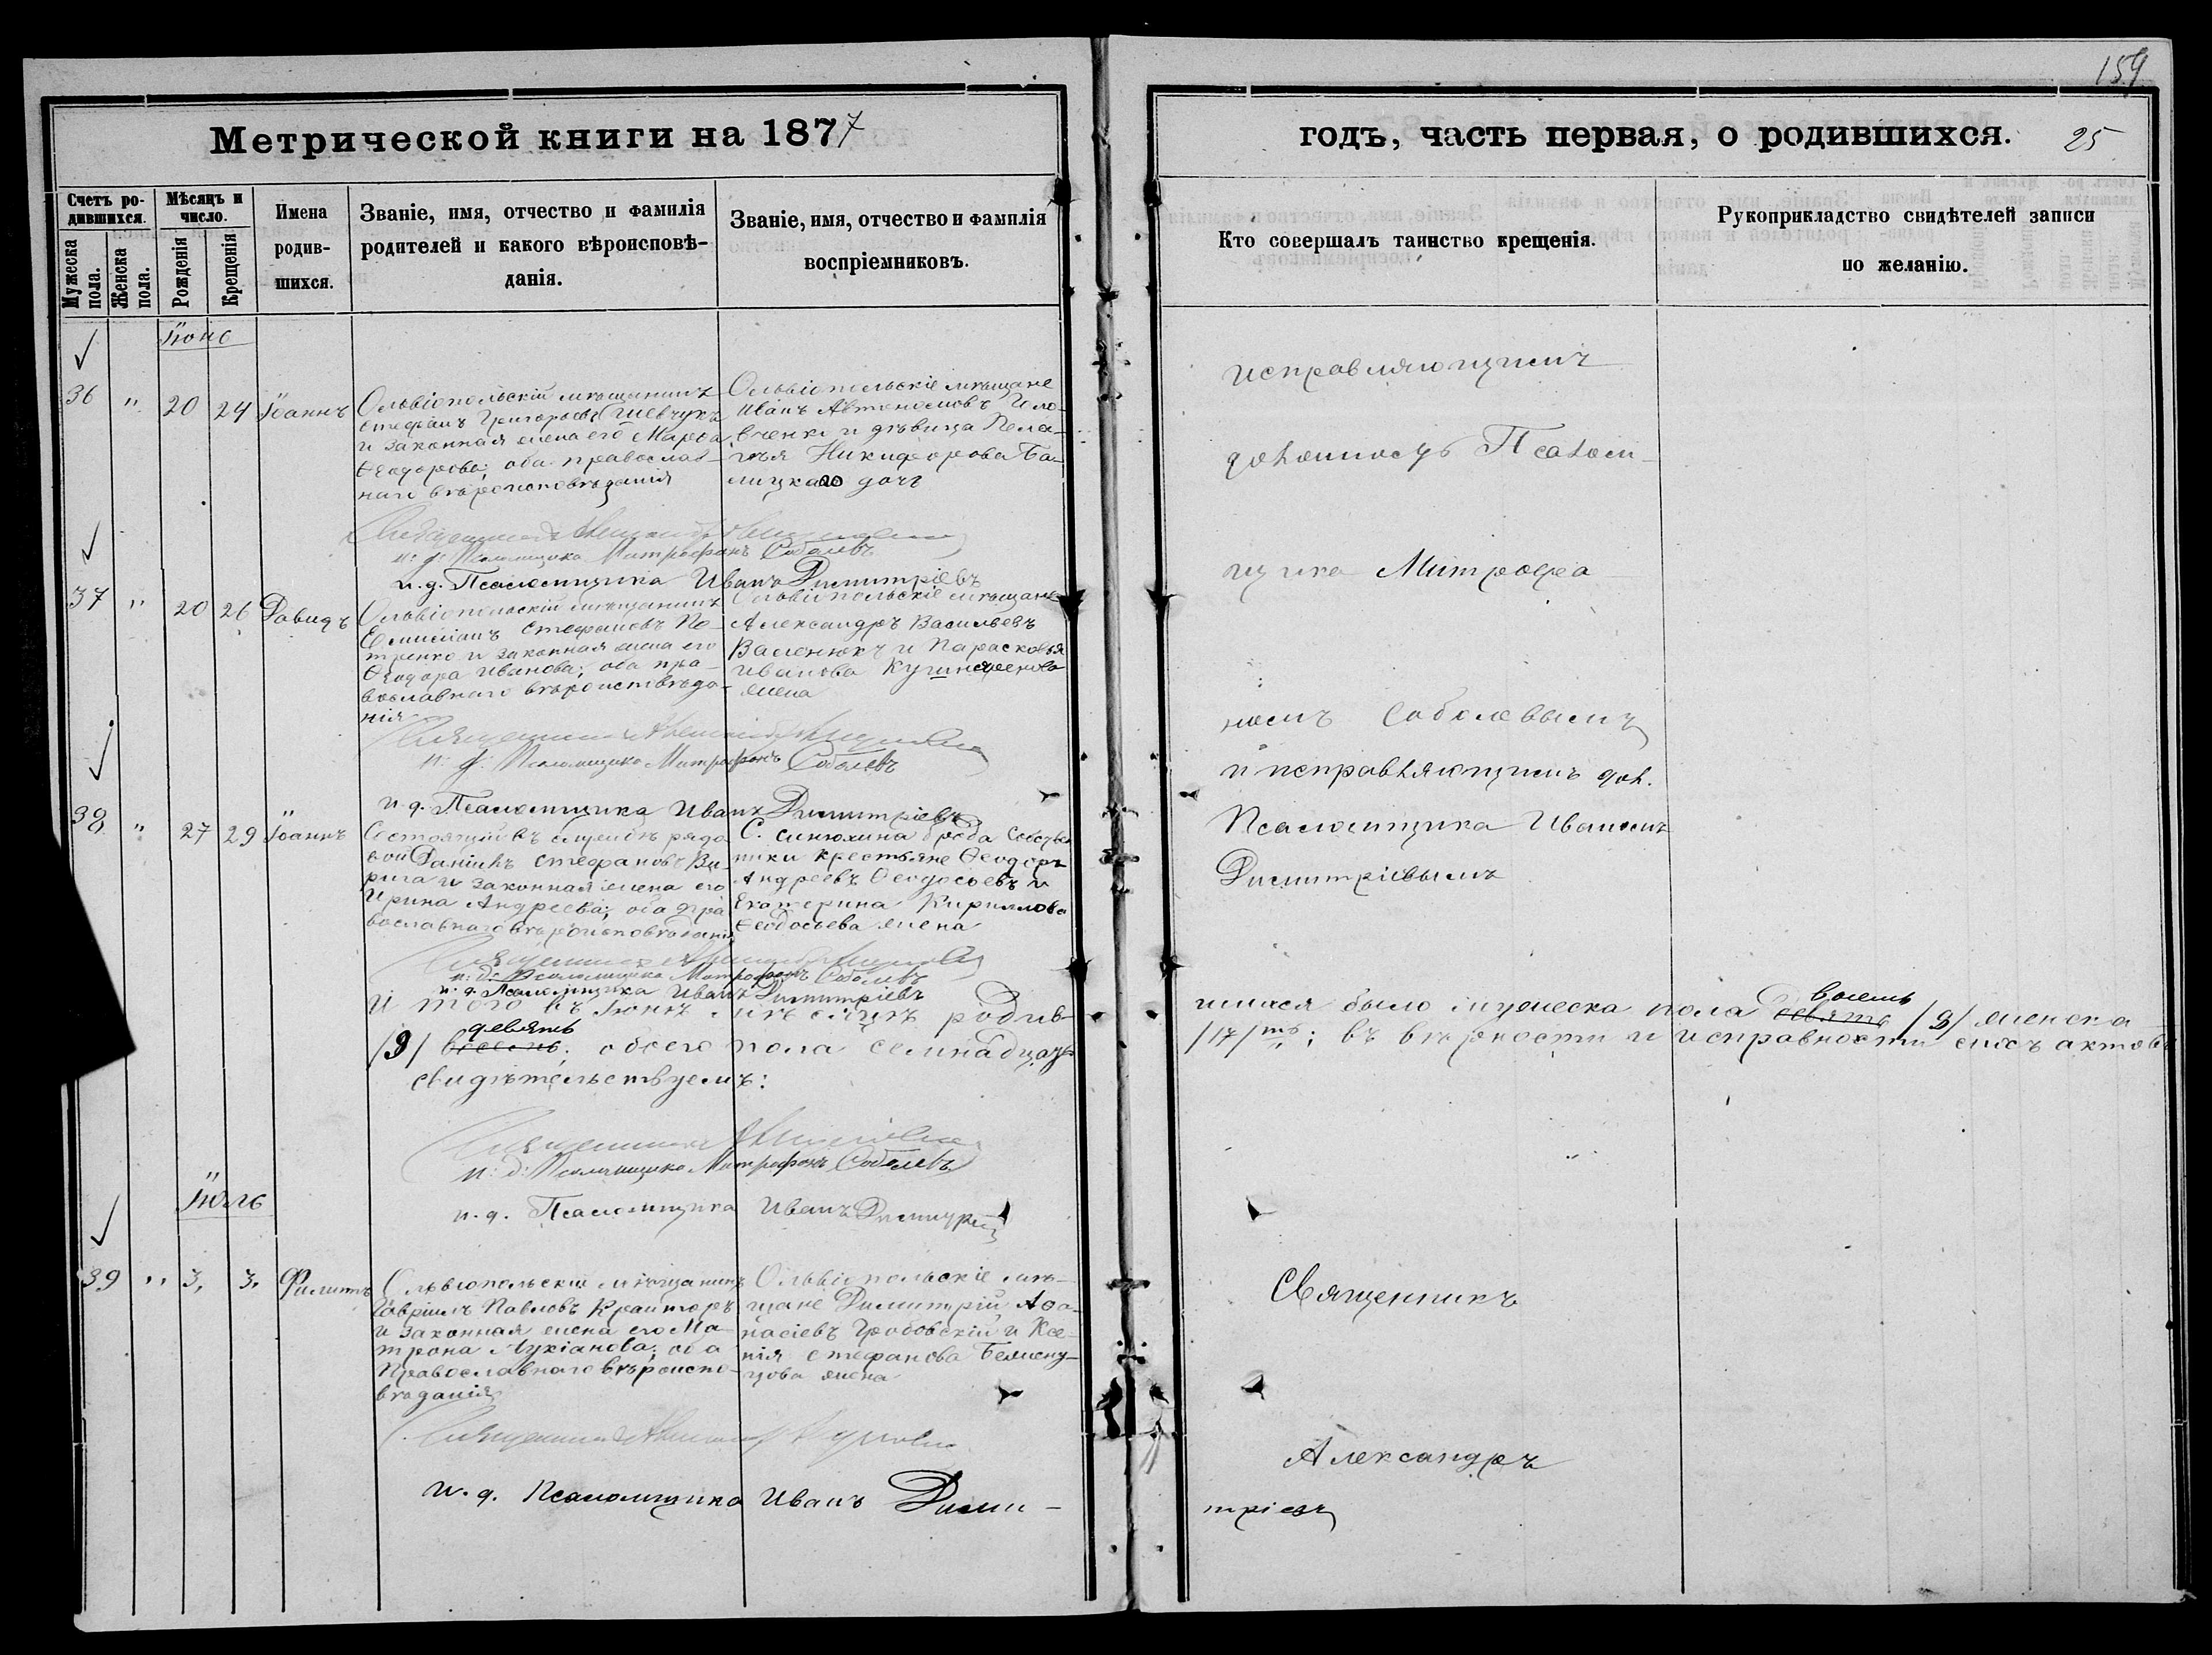 159
Метрической книги на 1877
годъ, часть первая, о родившихся. 25
Счетъ ро-
дившихся.
Мужеска
пола.
Женска
пола.
Мѣсяцъ и
число.
Рожденія
Крещенія
Имена
родив-
шихся.
Званіе, имя, отчество и фамилія
родителей и какого вѣроисповѣ-
данія.
Званіе, имя, отчество и фамилія
воспріемниковъ.
Кто совершалъ таинство крещенія.
Рукоприкладство свидѣтелей записи
по желанію.
Іюнь
36 " 20 24 Іоаннъ
Ольвіопольскій мѣщанинъ
Стефанъ Григорьевъ Шевчукъ
и законная жена его Марѳа
Ѳеодорова; оба православ-
наго вѣроисповѣданія
Ольвіопольскіе мѣщане
Иванъ Автономовъ
и дѣвица Пела-
гія Никифорова Ба-
лицкаго дочь
исправляющимъ
должность Псалом-
щика Митрофа-
номъ Соболевымъ
и исправляющимъ дол.
Псаломщика Иваномъ
Димитріевымъ
Священникъ
и: д: Псаломщика Митрофанъ Соболевъ
и. д. Псаломщика Иванъ Димитріевъ
37 " 20 26 Давидъ
Ольвіопольскій мѣщанинъ
Емиліанъ Стефановъ По-
тренко и законная жена его
Ѳеодора Иванова; оба пра-
вославнаго вѣроисповѣда-
нія
Ольвіопольскіе мѣщане
Александръ Васильевъ
Валенюкъ и Парасковья
Иванова
жена
Священникъ
и: д: Псаломщика Митрофанъ Соболевъ
и. д. Псаломщика Иванъ Димитріевъ
38 " 27 29 Іоаннъ
Состоящій въ службѣ рядо-
вой Даніилъ Стефановъ Ве-
рига и законная жена его
Ирина Андреева; оба пра-
вославнаго вѣроисповѣданія
С. Синюхина брода Собствен-
ники крестьяне Ѳеодоръ
Андреевъ Ѳеодосьевъ и
Екатерина Кириллова
Ѳеодосьева жена
Священникъ
и: д: Псаломщика Митрофанъ Соболевъ
и. д. Псаломщика Иванъ Димитріевъ
И того въ Іюнѣ мѣсяцѣ родив-
шихся было мужеска пола девять восемь /8/ женска
/9/ восемь девять. обоего пола семнадцать
/17/ть; въ вѣрности и исправности сихъ актовъ
свидѣтельствуемъ:
Священникъ
и: д: Псаломщика Митрофанъ Соболевъ
и. д. Псаломщика Иванъ Димитріевъ
Іюль
39 " 3. 3. Филиппъ
Ольвіопольскій мѣщанинъ
Гавріилъ Павловъ Крайтеръ
и законная жена его Ма-
трона Лукіанова; оба
Православнаго вѣроиспо-
вѣданія
Ольвіопольскіе мѣ-
щане Димитрій Аѳа-
насіевъ Гробовскій и Ксе-
нія Стефанова
жена
Священникъ
Александръ
Священникъ
и. д. Псаломщика Иванъ Дими-
тріевъ